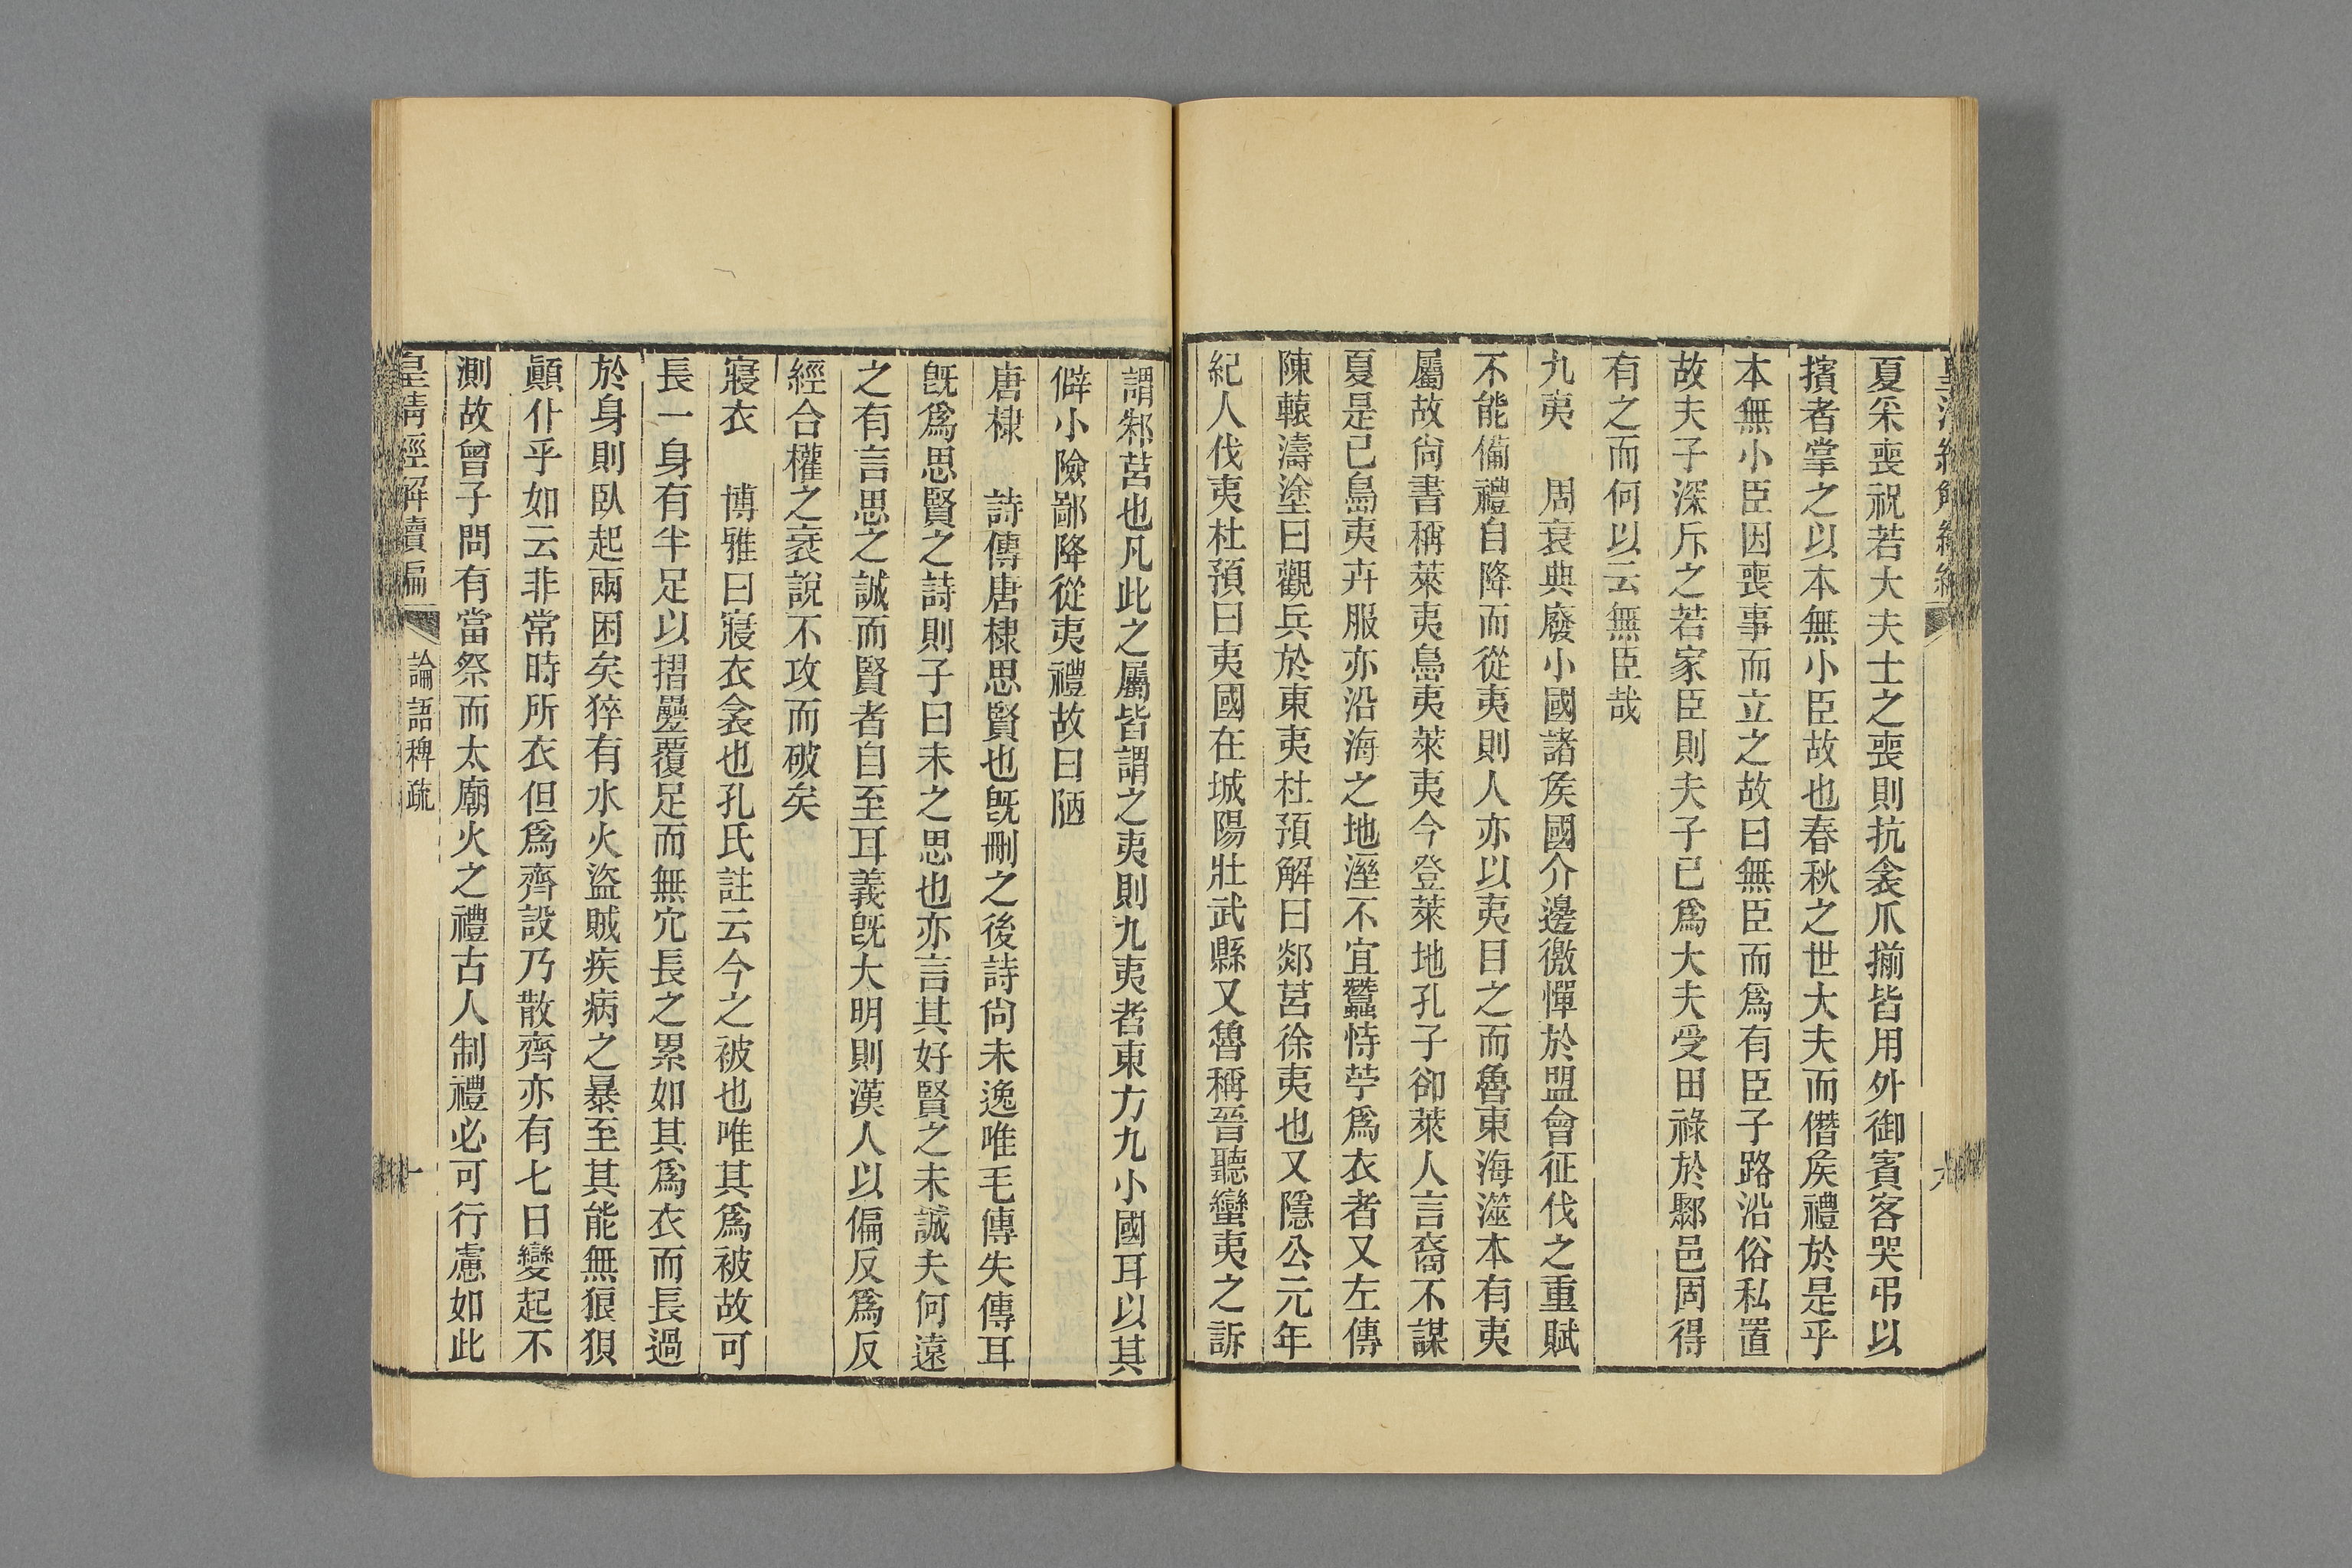 夏采喪祝若大夫士之喪則抗衾爪揃皆用外御賓客哭弔以
擯者掌之以本無小臣故也春秋之世大夫而僭矦禮於是乎
本無小臣因喪事而立之故曰無臣而爲有臣子路沿俗私置
故夫子深斥之若家臣則夫子已爲大夫受田祿於鄹邑固得
有之而何以云無臣哉
九夷　周衰典廢小國諸矦國介邊徼憚於盟會征伐之重賦
不能備禮自降而從夷則人亦以夷目之而魯東海澨本有夷
屬故尙書稱萊夷島夷萊夷今登萊地孔子卻萊人言裔不謀
夏是已島夷卉服亦沿海之地溼不宜蠶恃苧爲衣者又左傳
陳轅濤塗曰觀兵於東夷杜預解曰郯莒徐夷也又隱公元年
紀人伐夷杜預曰夷國在城陽壯武縣又魯稱晉聽蠻夷之訴
謂邾莒也凡此之屬皆謂之夷則九夷者東方九小國耳以其
僻小險鄙降從夷禮故曰陋
唐棣　詩傳唐棣思賢也旣刪之後詩尙未逸唯毛傳失傳耳
旣爲思賢之詩則子曰未之思也亦言其好賢之未誠夫何遠
之有言思之誠而賢者自至耳義旣大明則漢人以偏反爲反
經合權之衺說不攻而破矣
寢衣　博雅曰寢衣衾也孔氏註云今之被也唯其爲被故可
長一身有半足以摺疊覆足而無宂長之累如其爲衣而長過
於身則臥起兩困矣猝有水火盜賊疾病之暴至其能無狼狽
顚仆乎如云非常時所衣但爲齊設乃散齊亦有七日變起不
測故曾子問有當祭而太廟火之禮古人制禮必可行慮如此
皇淸經解續編　論語稗疏